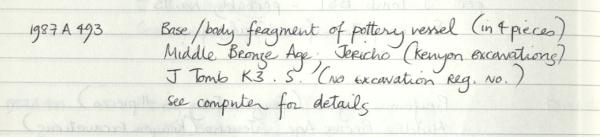 1987 A 493 Base/body fragment of pottery vessel (in 4 pieces)
Middle Bronze Age, Jericho (Kenyon excavations)
J Tomb K3. S. (No excavation Reg. No.)
See computer for details